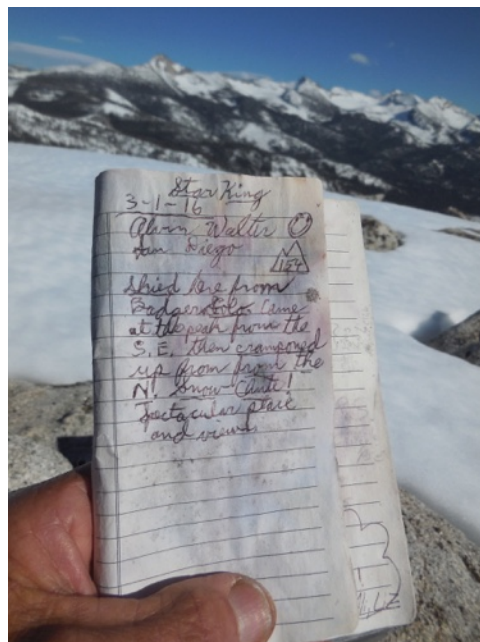 Star King
3-1-16
Alvin Walter
San Diego
154
Skied here from
Badger Solo. Came
at the peak from the
S.E. then cramponed
up from from the
N. Snow-Chute!
Spectacular place
and views
Liz